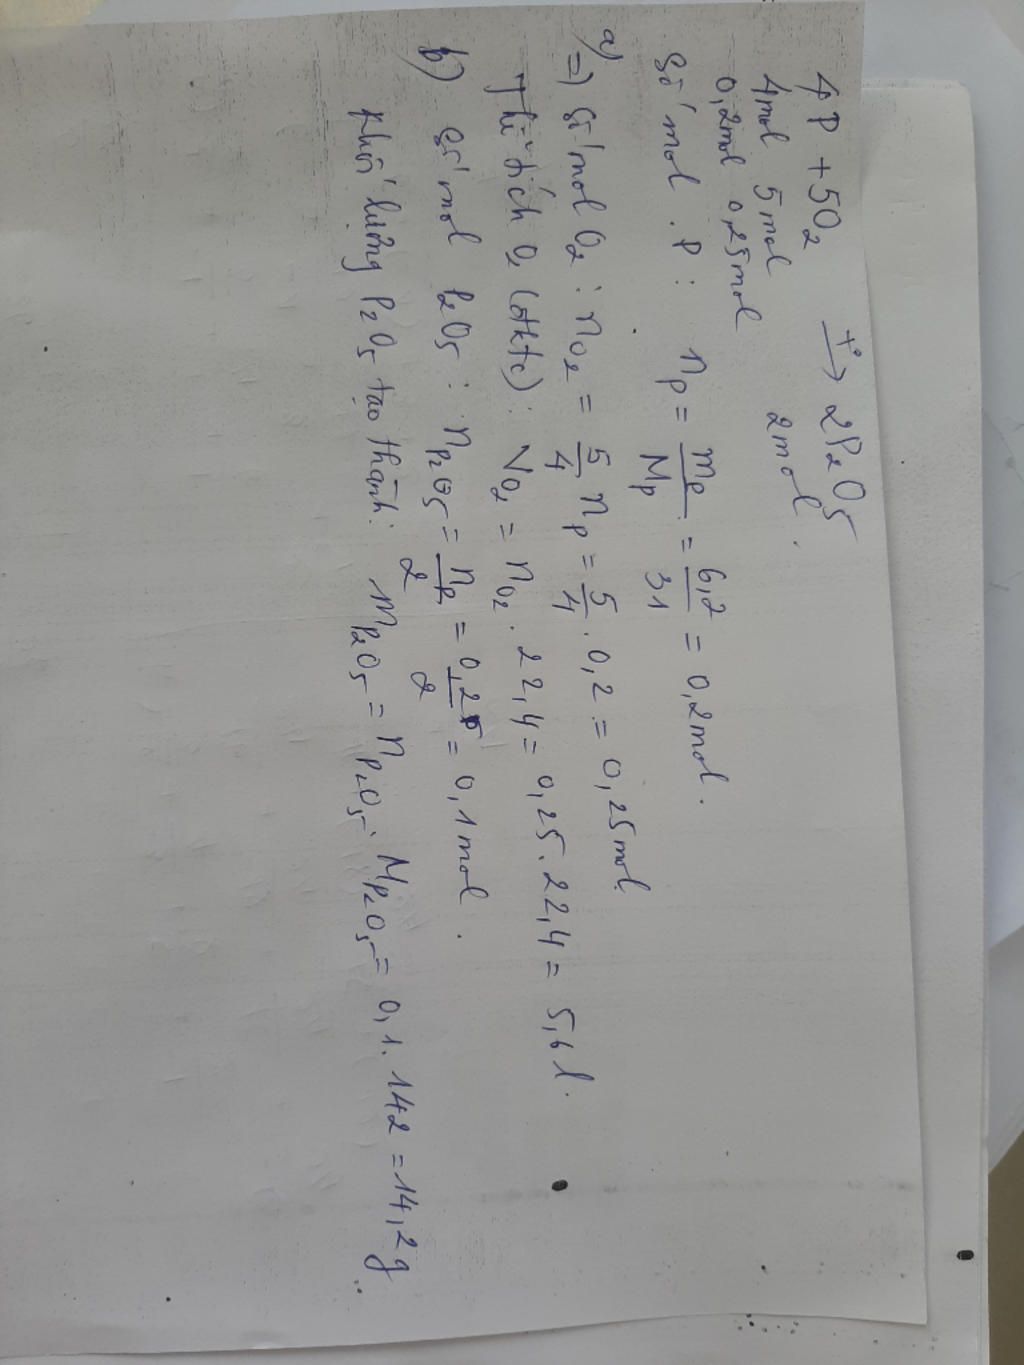 4P + 5O₂ →(t°) 2P₂O5
4mol 5mol 2mol.
0,2mol 0,25mol
Số mol P: nP = mP/MP = 6,2/31 = 0,2mol.
a) => Số mol O₂: nO₂ = 5/4 nP = 5/4 . 0,2 = 0,25mol
Thể tích O₂ (đktc): VO₂ = nO₂ . 22,4 = 0,25. 22,4 = 5,6l.
b) Số mol P₂O5: nP₂O5 = nP/2 = 0,2/2 = 0,1mol.
Khối lượng P₂O5 tạo thành: mP₂O5 = nP₂O5 . MP₂O5 = 0,1. 142 = 14,2g